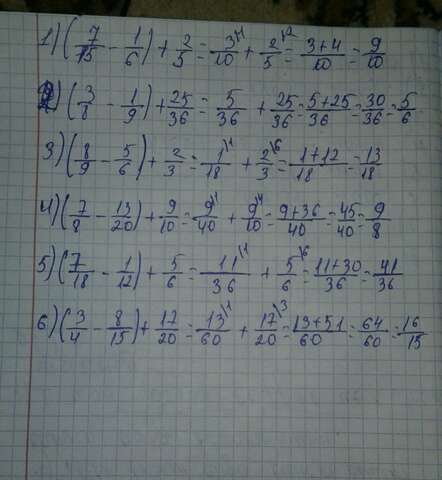 1) (7/15 - 1/6) + 2/5 = 3\1/10 + 2\2/5 = 3+4/10 = 9/10
2) (3/8 - 1/9) + 25/36 = 5/36 + 25/36 = 5+25/36 = 30/36 = 5/6
3) (8/9 - 5/6) + 2/3 = 1\1/18 + 2\6/3 = 1+12/18 = 13/18
4) (7/8 - 13/20) + 9/10 = 9\1/40 + 9\4/10 = 9+36/40 = 45/40 = 9/8
5) (7/18 - 1/12) + 5/6 = 11\1/36 + 5\6/6 = 11+30/36 = 41/36
6) (3/4 - 8/15) + 17/20 = 13\1/60 + 17\3/20 = 13+51/60 = 64/60 = 16/15